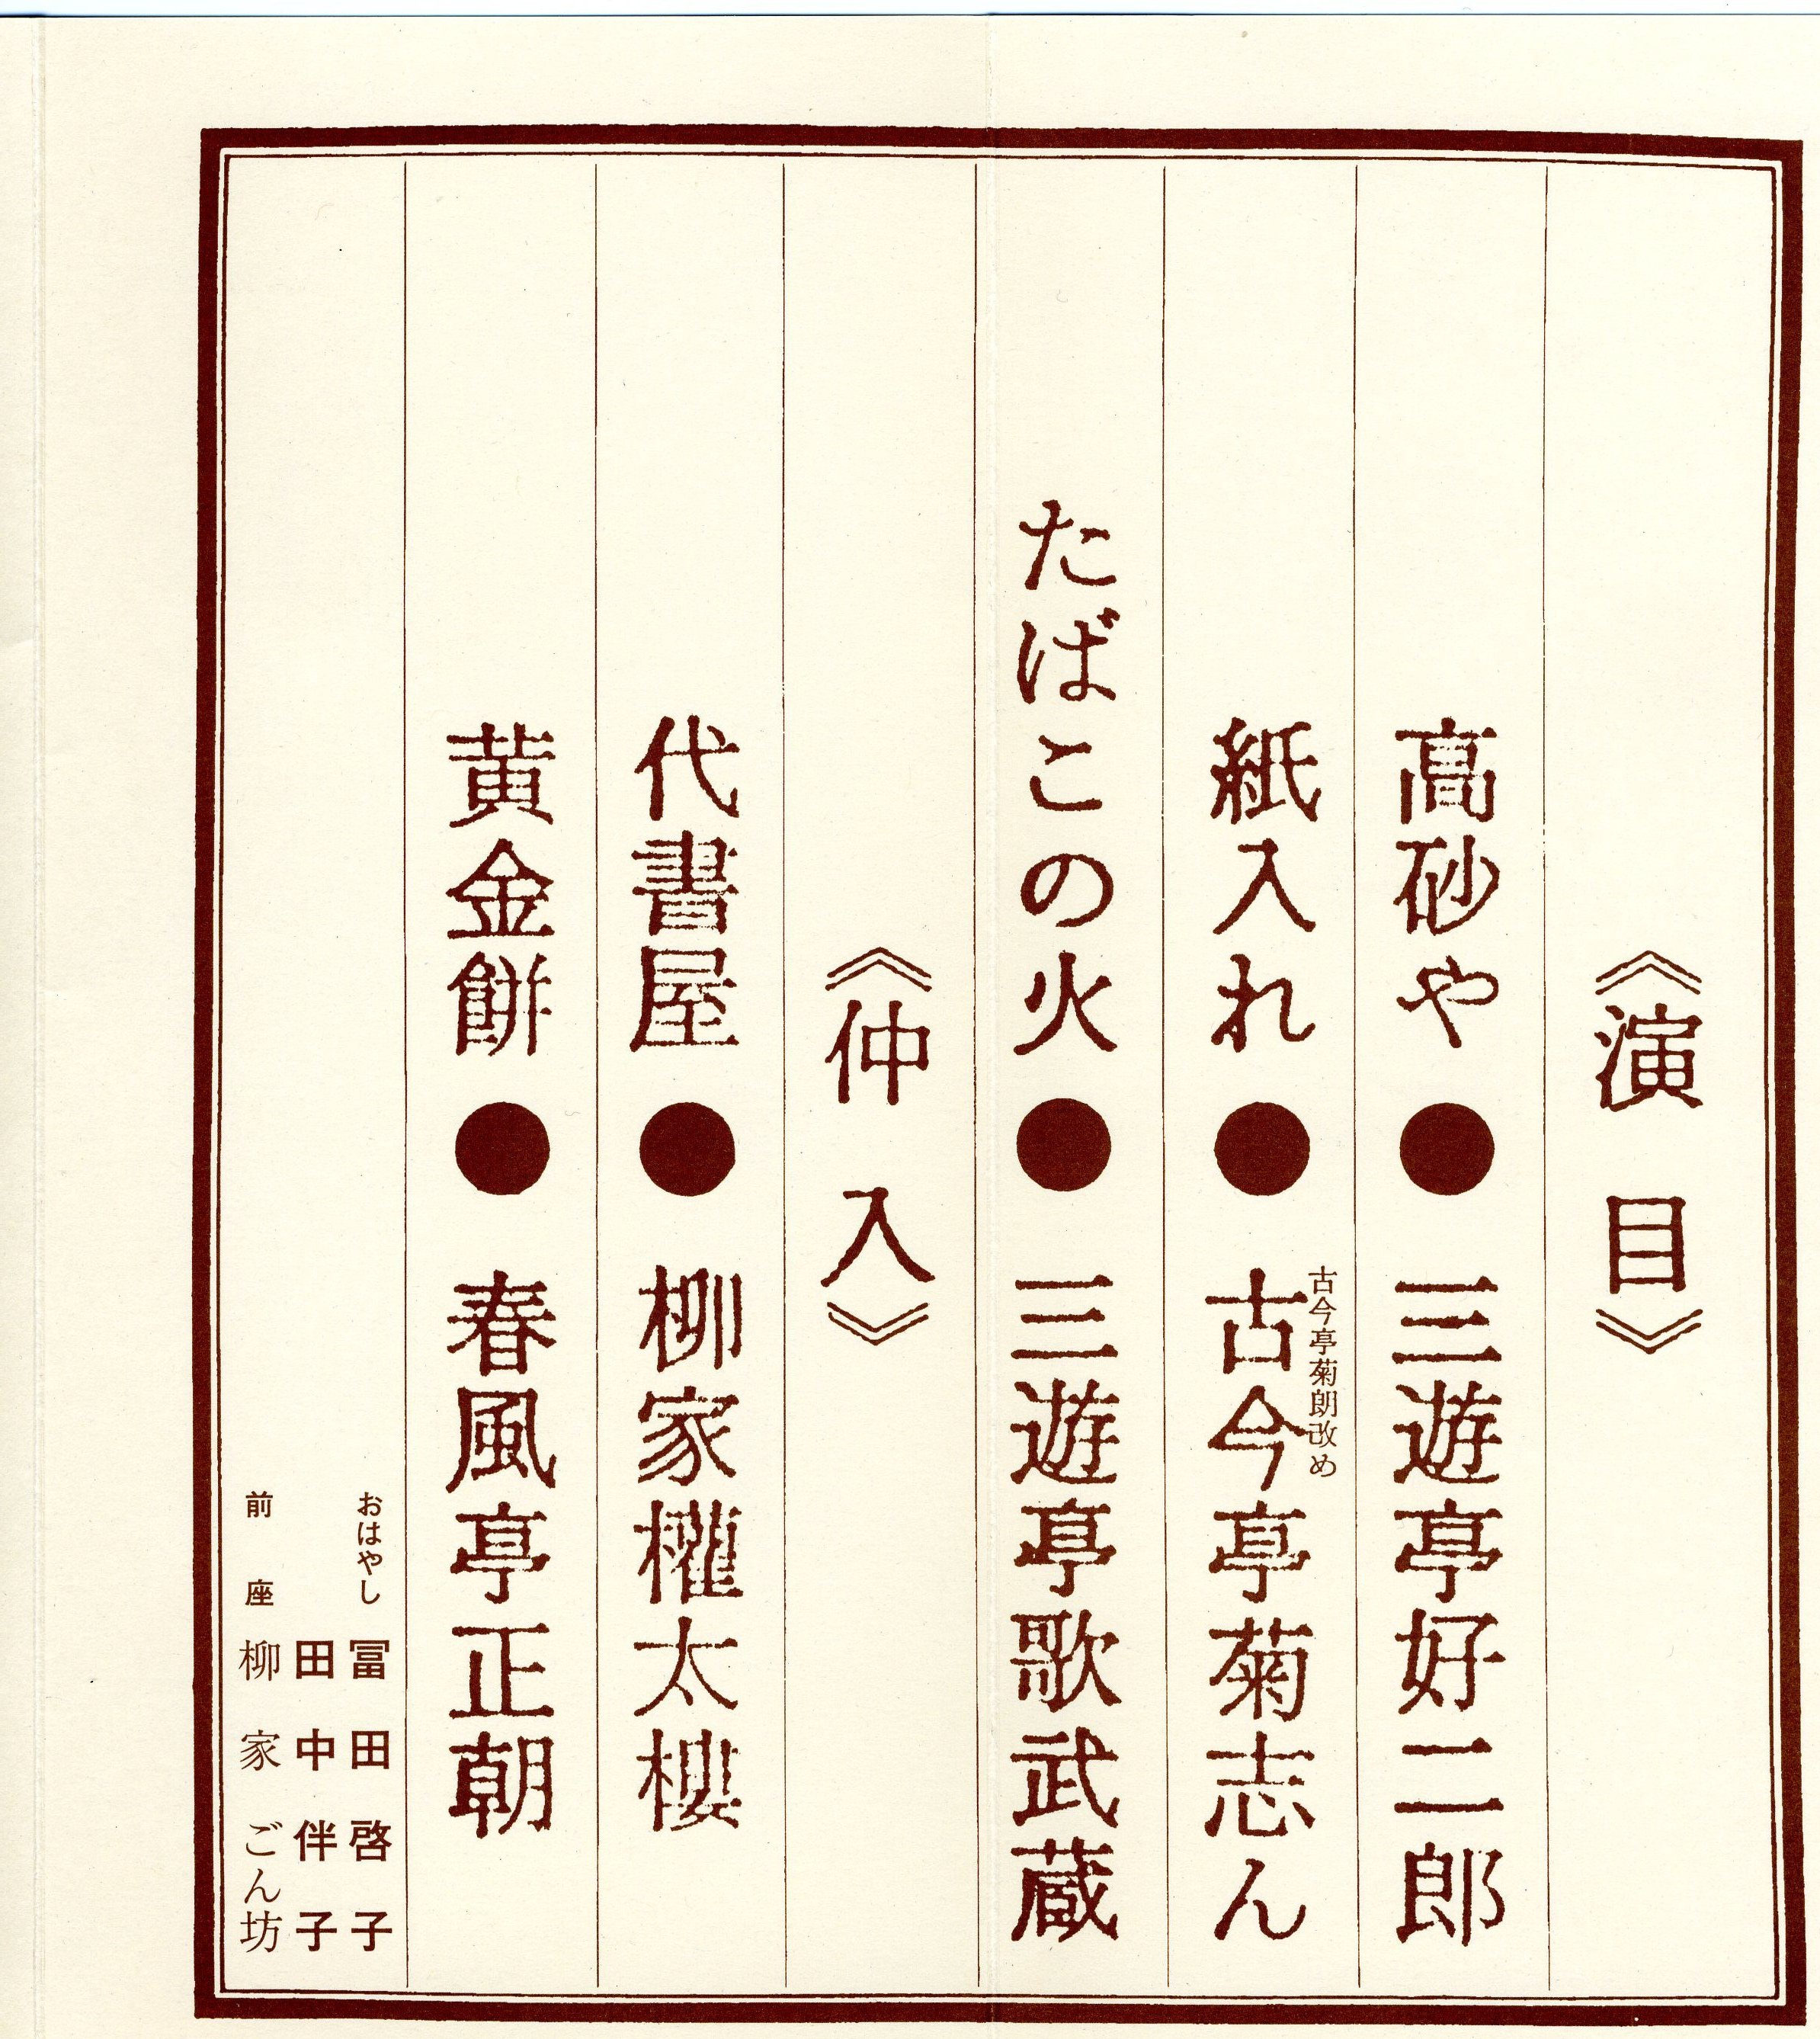 《演目》
高砂や●三遊亭好二郎
古今亭菊朗改め
紙入れ●古今亭菊志ん
たばこの火●三遊亭歌武蔵
《仲入》
代書屋●柳家權太樓
黄金餅●春風亭正朝
おはやし 冨田啓子
田中伴子
前座 柳家ごん坊